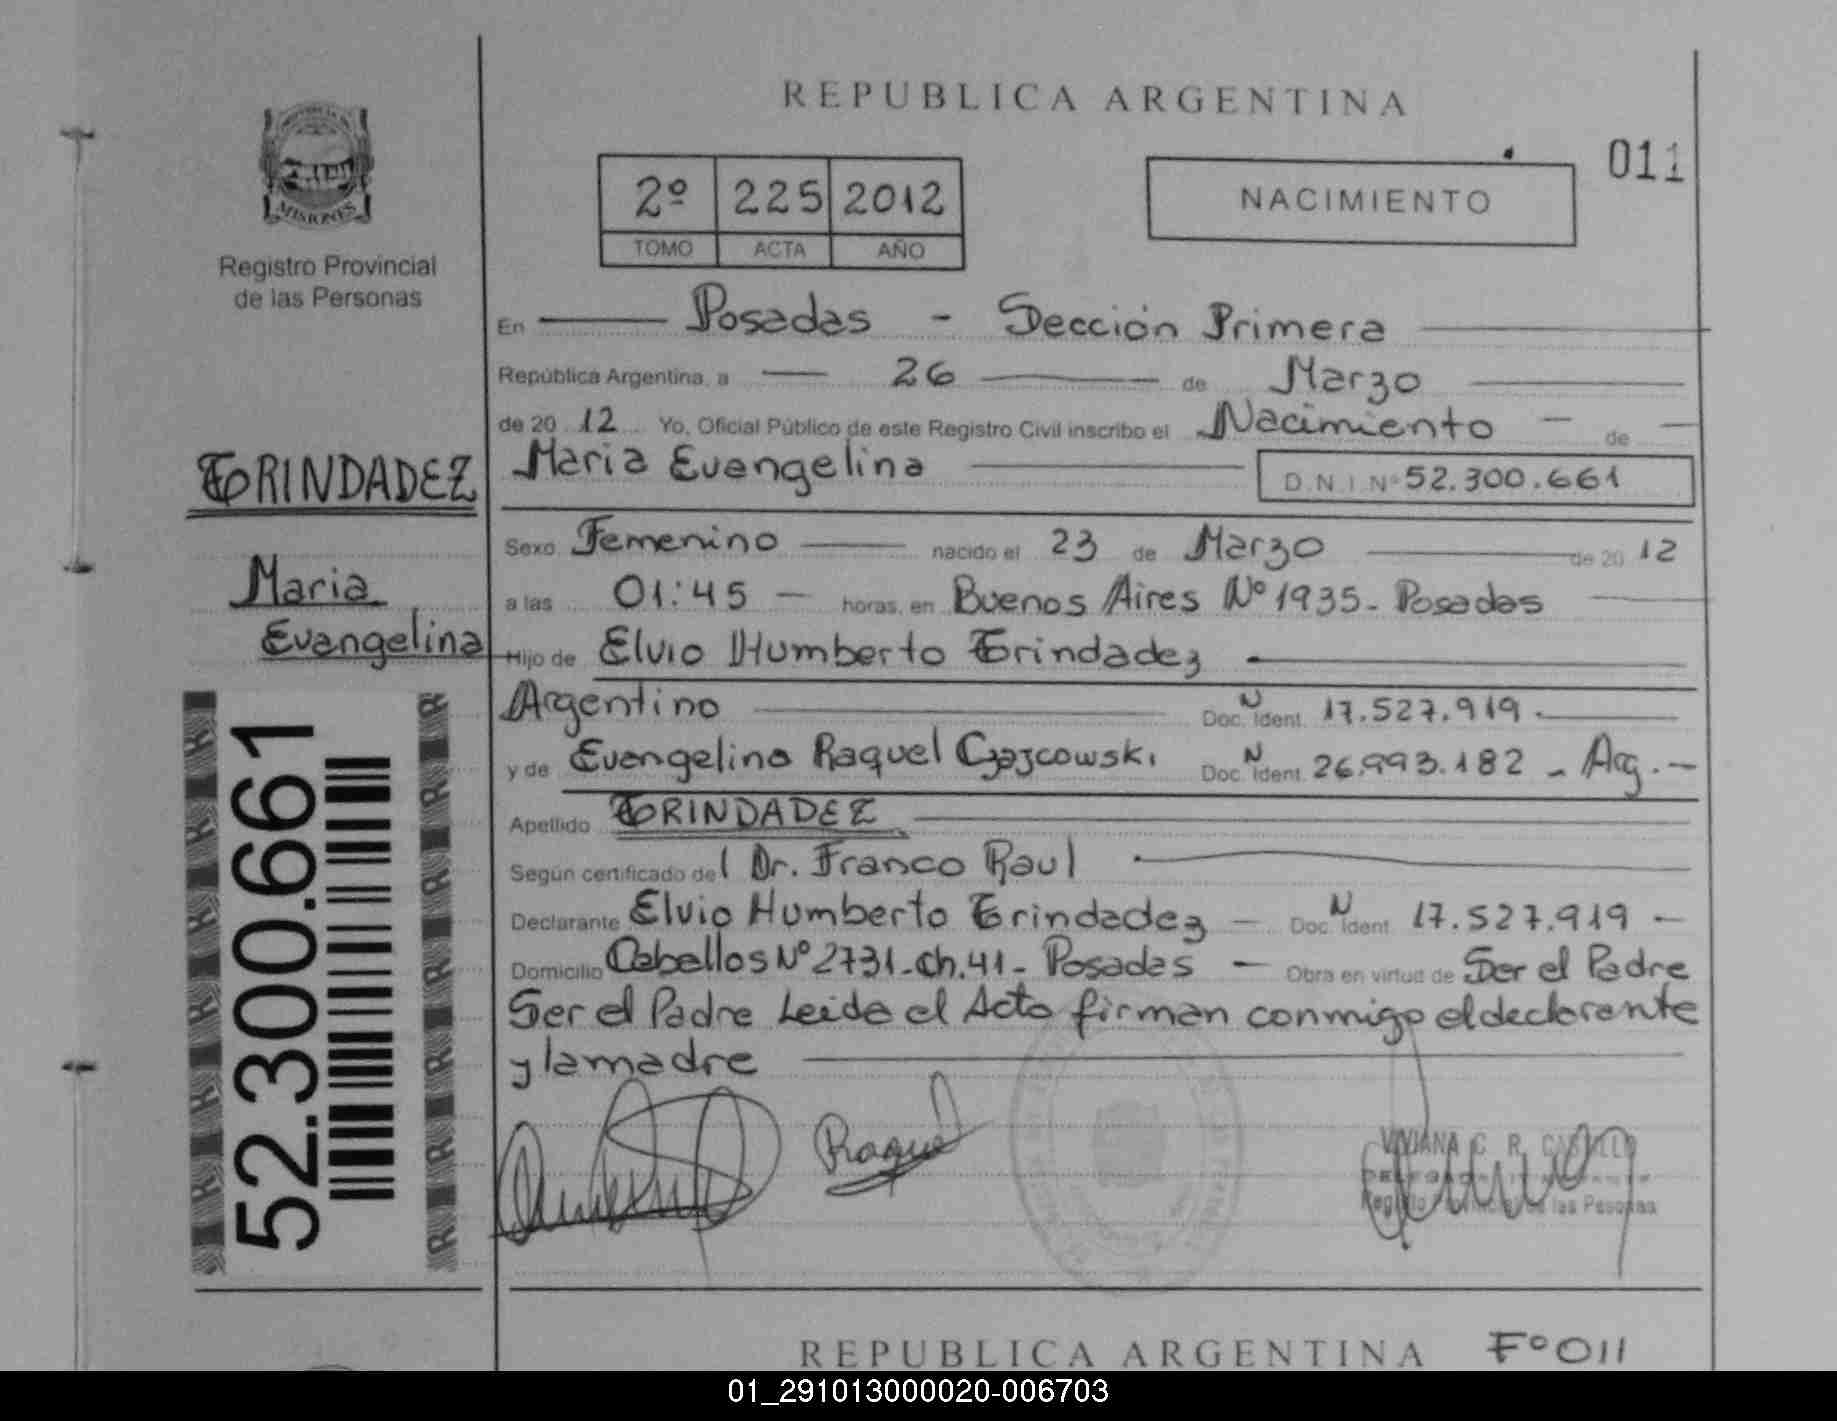 REPUBLICA ARGENTINA
011
2º 225 2012
TOMO ACTA AÑO
NACIMIENTO
MISIONES
Registro Provincial
de las Personas
En Posadas - Sección Primera
República Argentina, a 26 de Marzo
de 20 12 Yo, Oficial Público de este Registro Civil inscribo el Nacimiento - de
Maria Evangelina D.N.I. Nº 52.300.661
TRINDADEZ
Maria
Evangelina
Sexo Femenino nacido el 23 de Marzo de 20 12
a las 01:45 - horas, en Buenos Aires Nº 1935 - Posadas
Hijo de Elvio Humberto Trindadez
Argentino Doc. N Ident. 17.527.919.
y de Evangelina Raquel Czajcowski Doc. N Ident. 26.993.182 - Arg. -
Apellido TRINDADEZ
Según certificado del Dr. Franco Raul
Declarante Elvio Humberto Trindadez - Doc. N Ident. 17.527.919 -
Domicilio Ceballos Nº 2731 - Ch. 41 - Posadas - Obra en virtud de Ser el Padre
Ser el Padre Leida el Acta firman conmigo el declarante
y la madre
52.300.661
Raquel
VIVIANA C. R. CASTILLO
Registro Provincial de las Personas
REPUBLICA ARGENTINA Fº 011
01_291013000020-006703